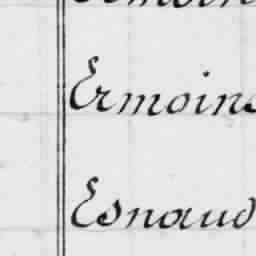 Ermoins
Esnaud